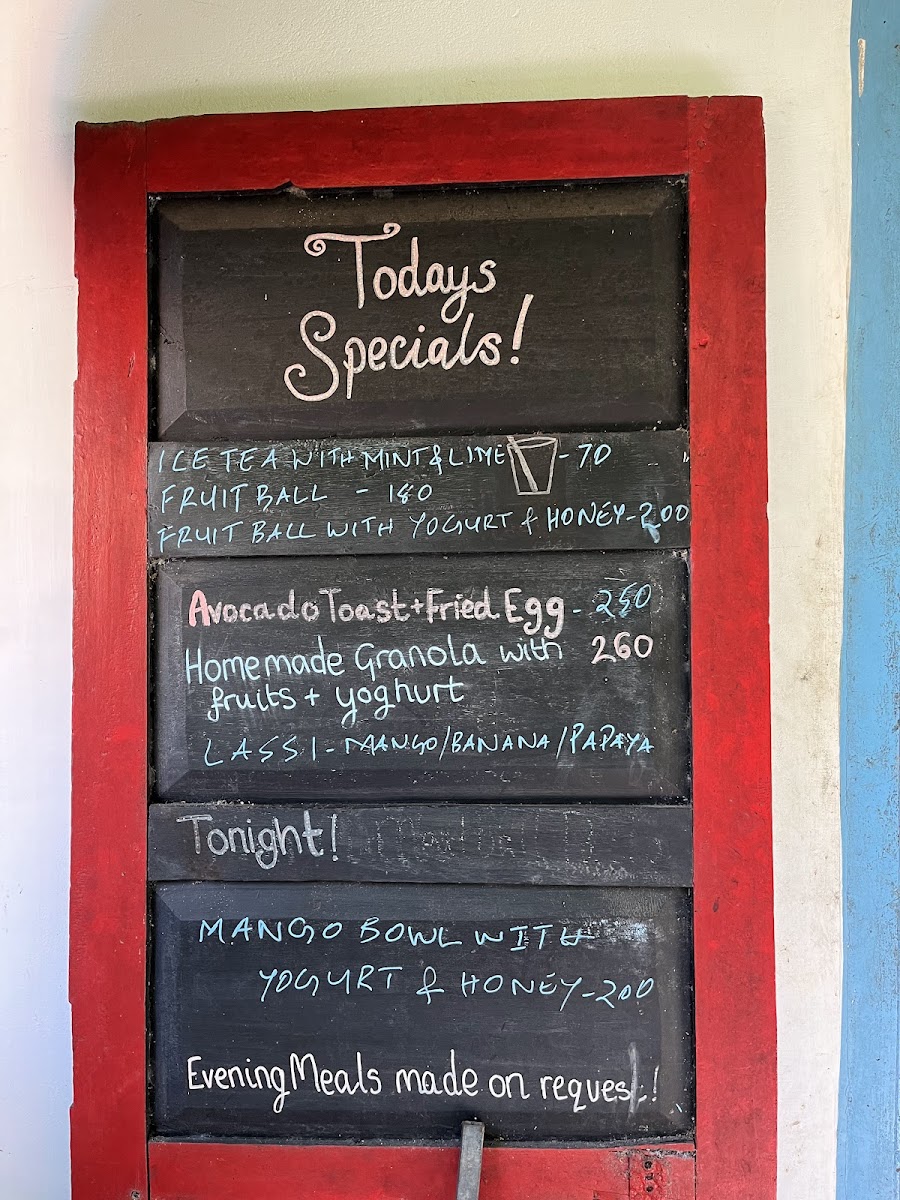 Todays
Specials!
ICE TEA WITH MINT & LIME - 70
FRUIT BALL - 180
FRUIT BALL WITH YOGURT & HONEY - 200
Avocado Toast + Fried Egg - 250
Homemade Granola with 260
fruits + yoghurt
LASSI - MANGO/BANANA/PAPAYA
Tonight!
MANGO BOWL WITH
YOGURT & HONEY - 200
Evening Meals made on request!